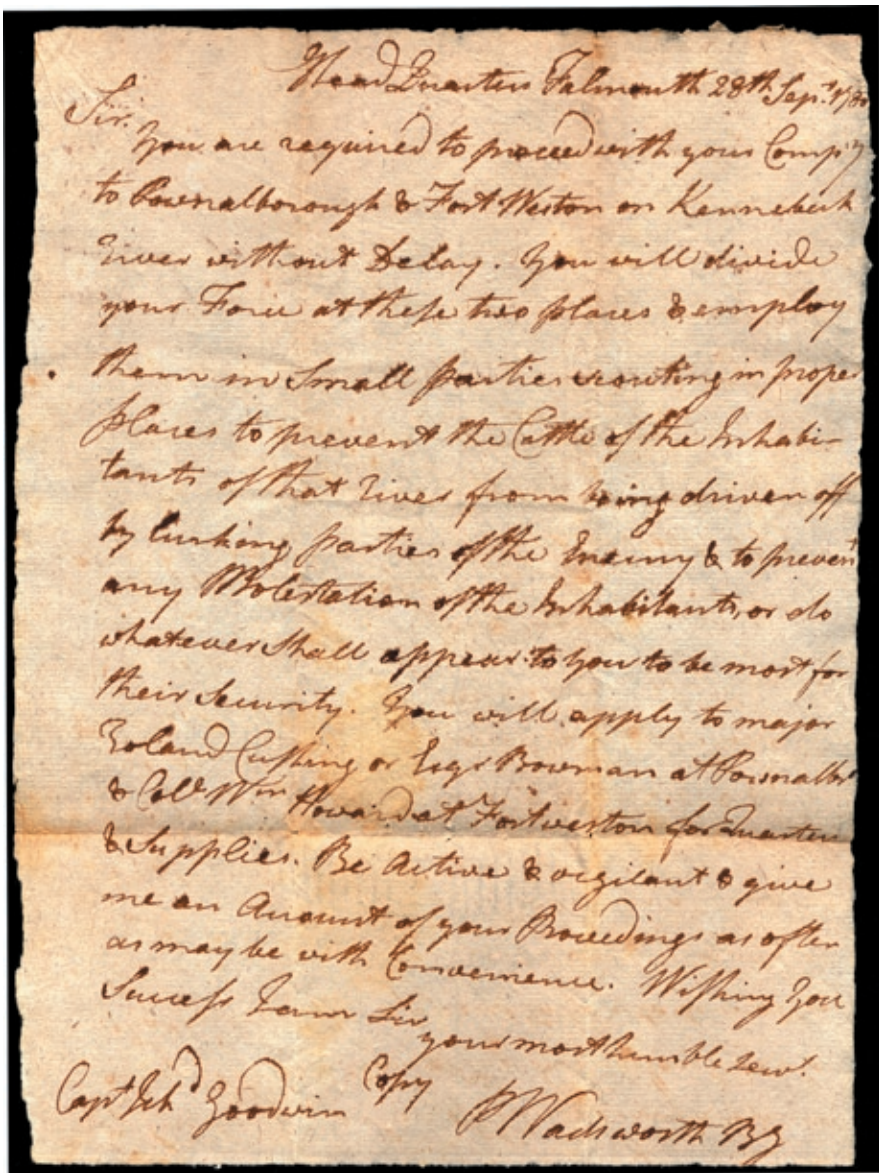 Head Quarters Falmouth 28th Sept. 1780
Sir.
You are required to proceed with your Compy
to Pownalborough & Fort Weston on Kennebeck
River without Delay. You will divide
your Force at these two places & employ
them in Small parties scouting in proper
places to prevent the Cattle of the Inhabi-
tants of that River from being driven off
by lurking parties of the Enemy & to prevent
any Molestation of the Inhabitants, or do
whatever Shall appear to You to be most for
their Security. You will apply to major
Roland Cushing or Esqr Bowman at Pownalbr
& Coll Wm Howard at Fort weston for Quarters
& Supplies. Be Active & vigilant & give
me an Account of your Proceedings as often
as may be with Convenience. Wishing You
Success I am Sir
your most humble servt.
Copy
Capt Goodwin
PWadsworth BG